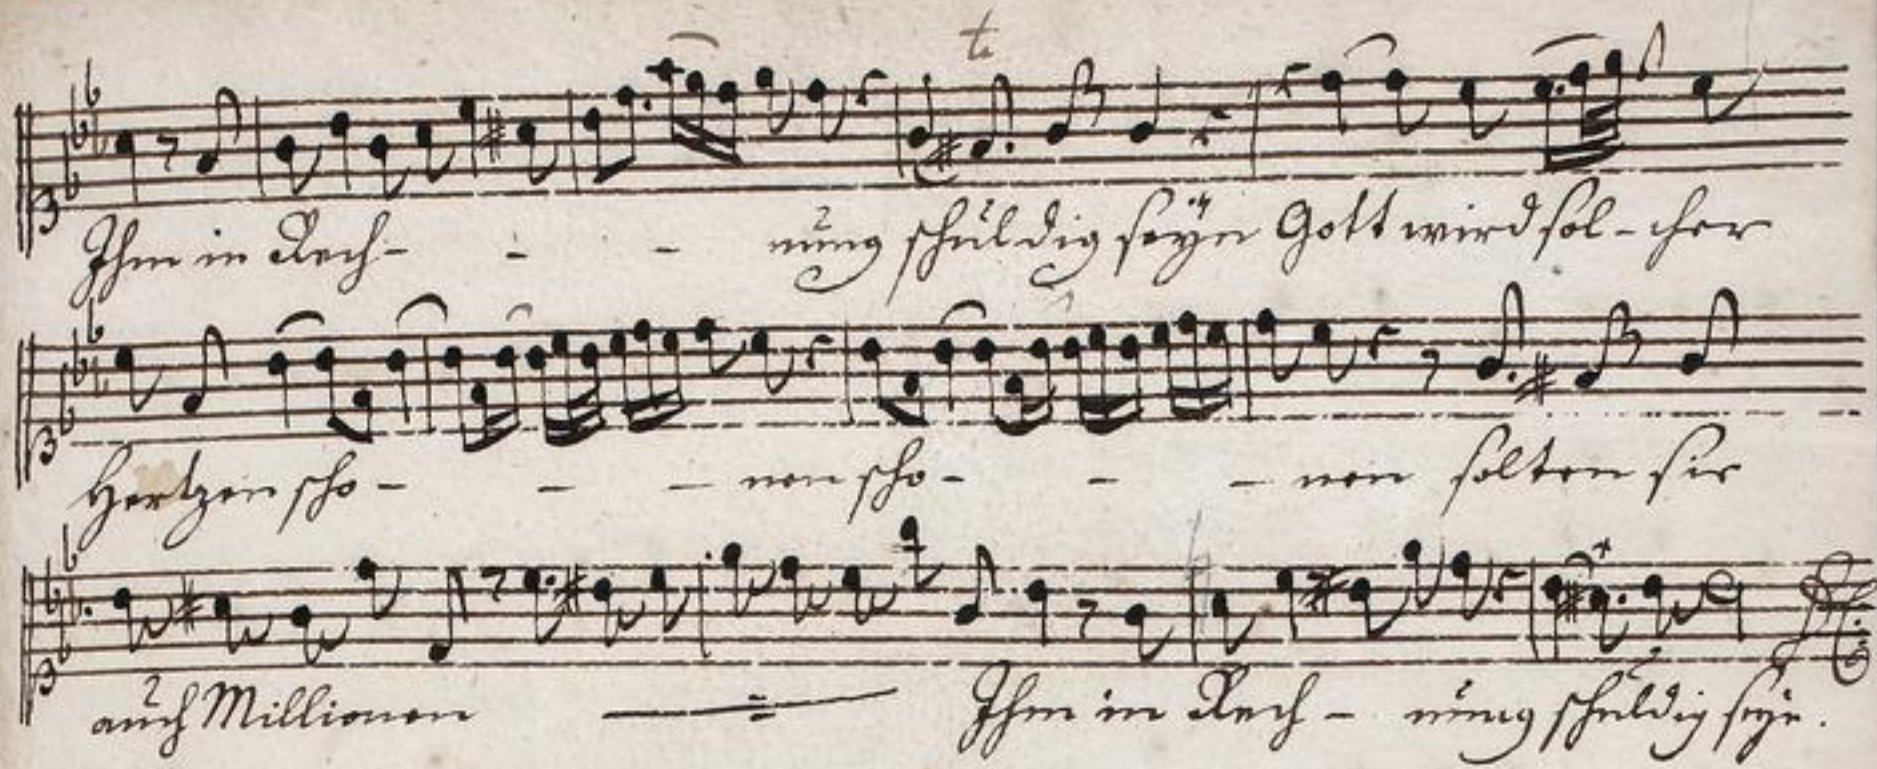 Ihm in Rech- - - nung schuldig seyn Gott wird sol-cher
Hertzen scho- - - nen scho- - - nen solten sie
auch Millionen Ihm in Rech- nung schuldig seyn.